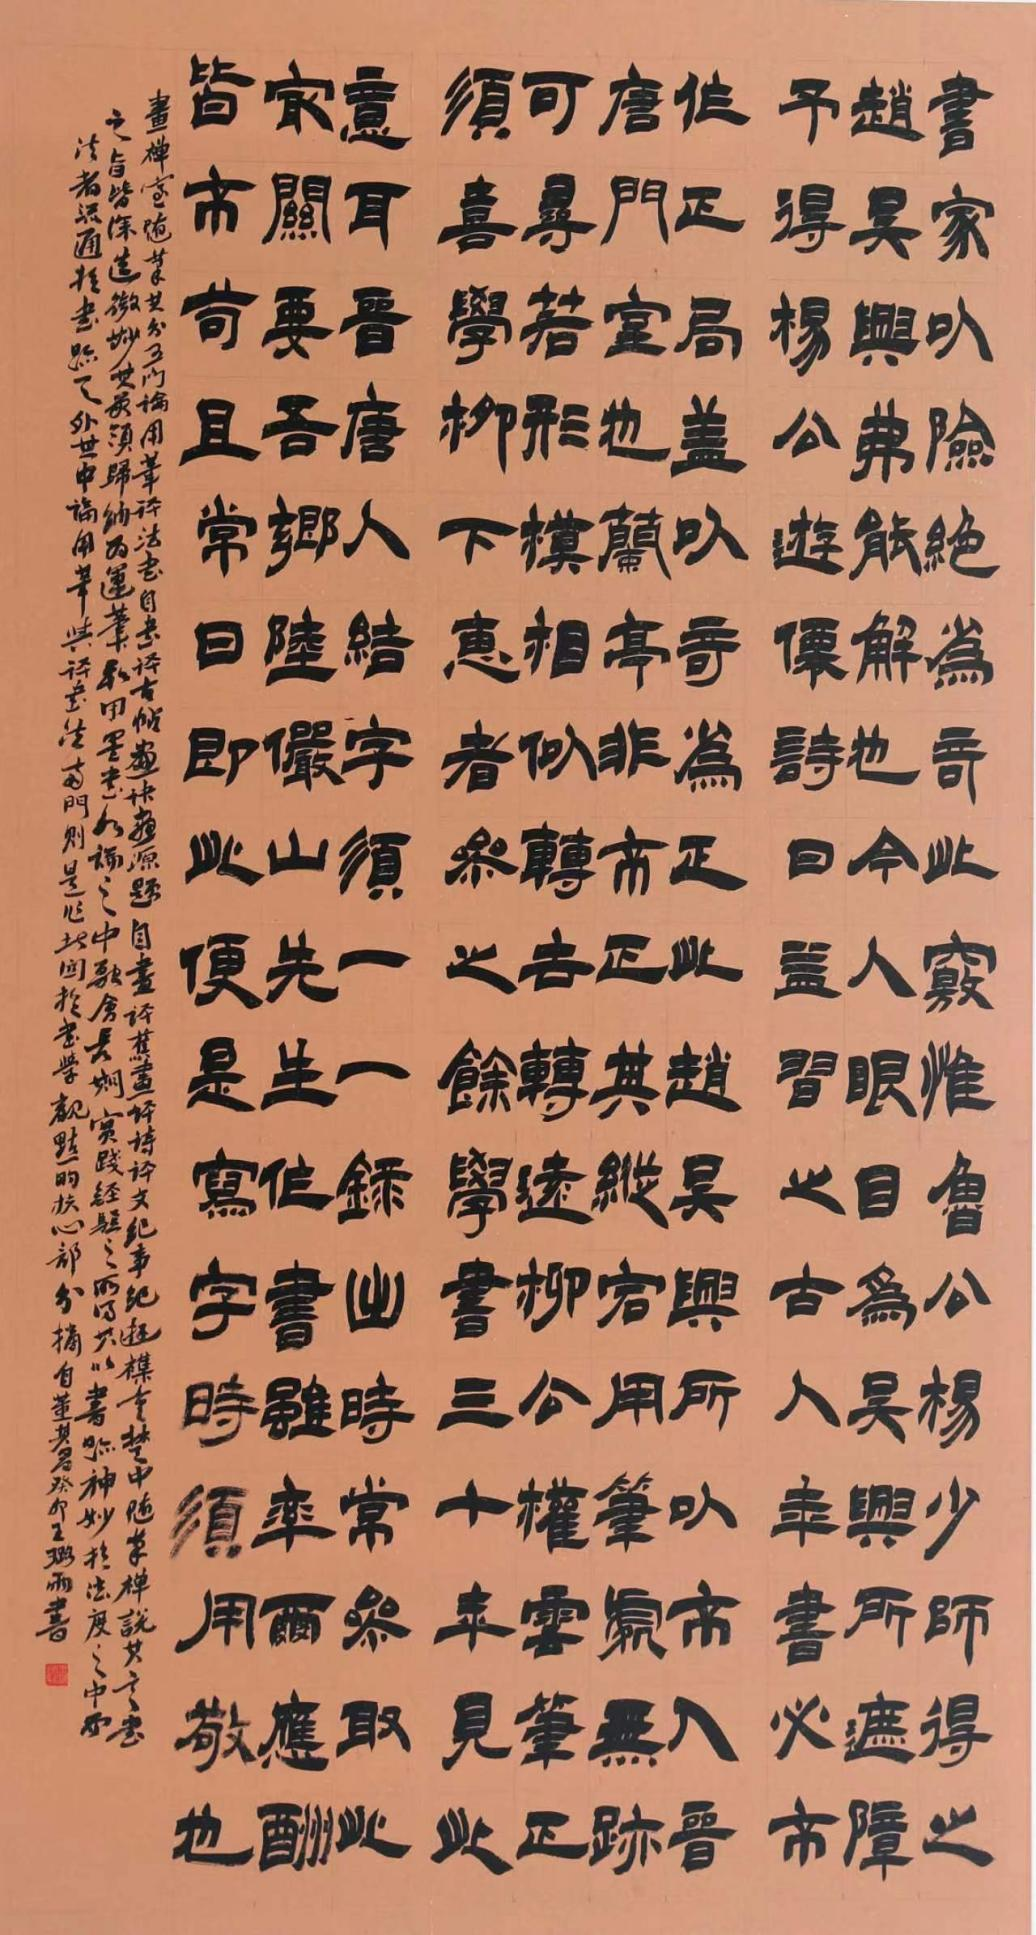 書家以險絕為奇此竅惟魯公楊少師得之
趙吳興弗能解也今人眼目為吳興所遮障
予得楊公遊僊詩曰益習之古人年書必不
作正局蓋以奇為正此趙吳興所以不入晉
唐門室也蘭亭非不正其縱宕用筆處無跡
可尋若形模相似轉去轉遠柳公權雲筆正
須喜學柳下惠者參之餘學書三十年見此
意耳晉唐人結字須一一錄出時常參取此
最關要吾鄉陸儼山先生作書雖率爾應酬
皆不苟且常曰即此便是寫字時須用敬也
畫禪室隨筆共分五門論用筆評法書自書評古帖畫訣畫源題自畫評舊畫評詩評文紀事紀遊楳言楚中隨筆禪說其言書
之旨皆深造微妙其要須歸納為運筆執用墨書論之中融會長期實踐經驗之所得其以書跡神妙於法度之中而
法者流通於書跡之外其中論用筆與評書法兩門則是作者關於書學觀點的核心部分摘自董其昌癸卯王雨書